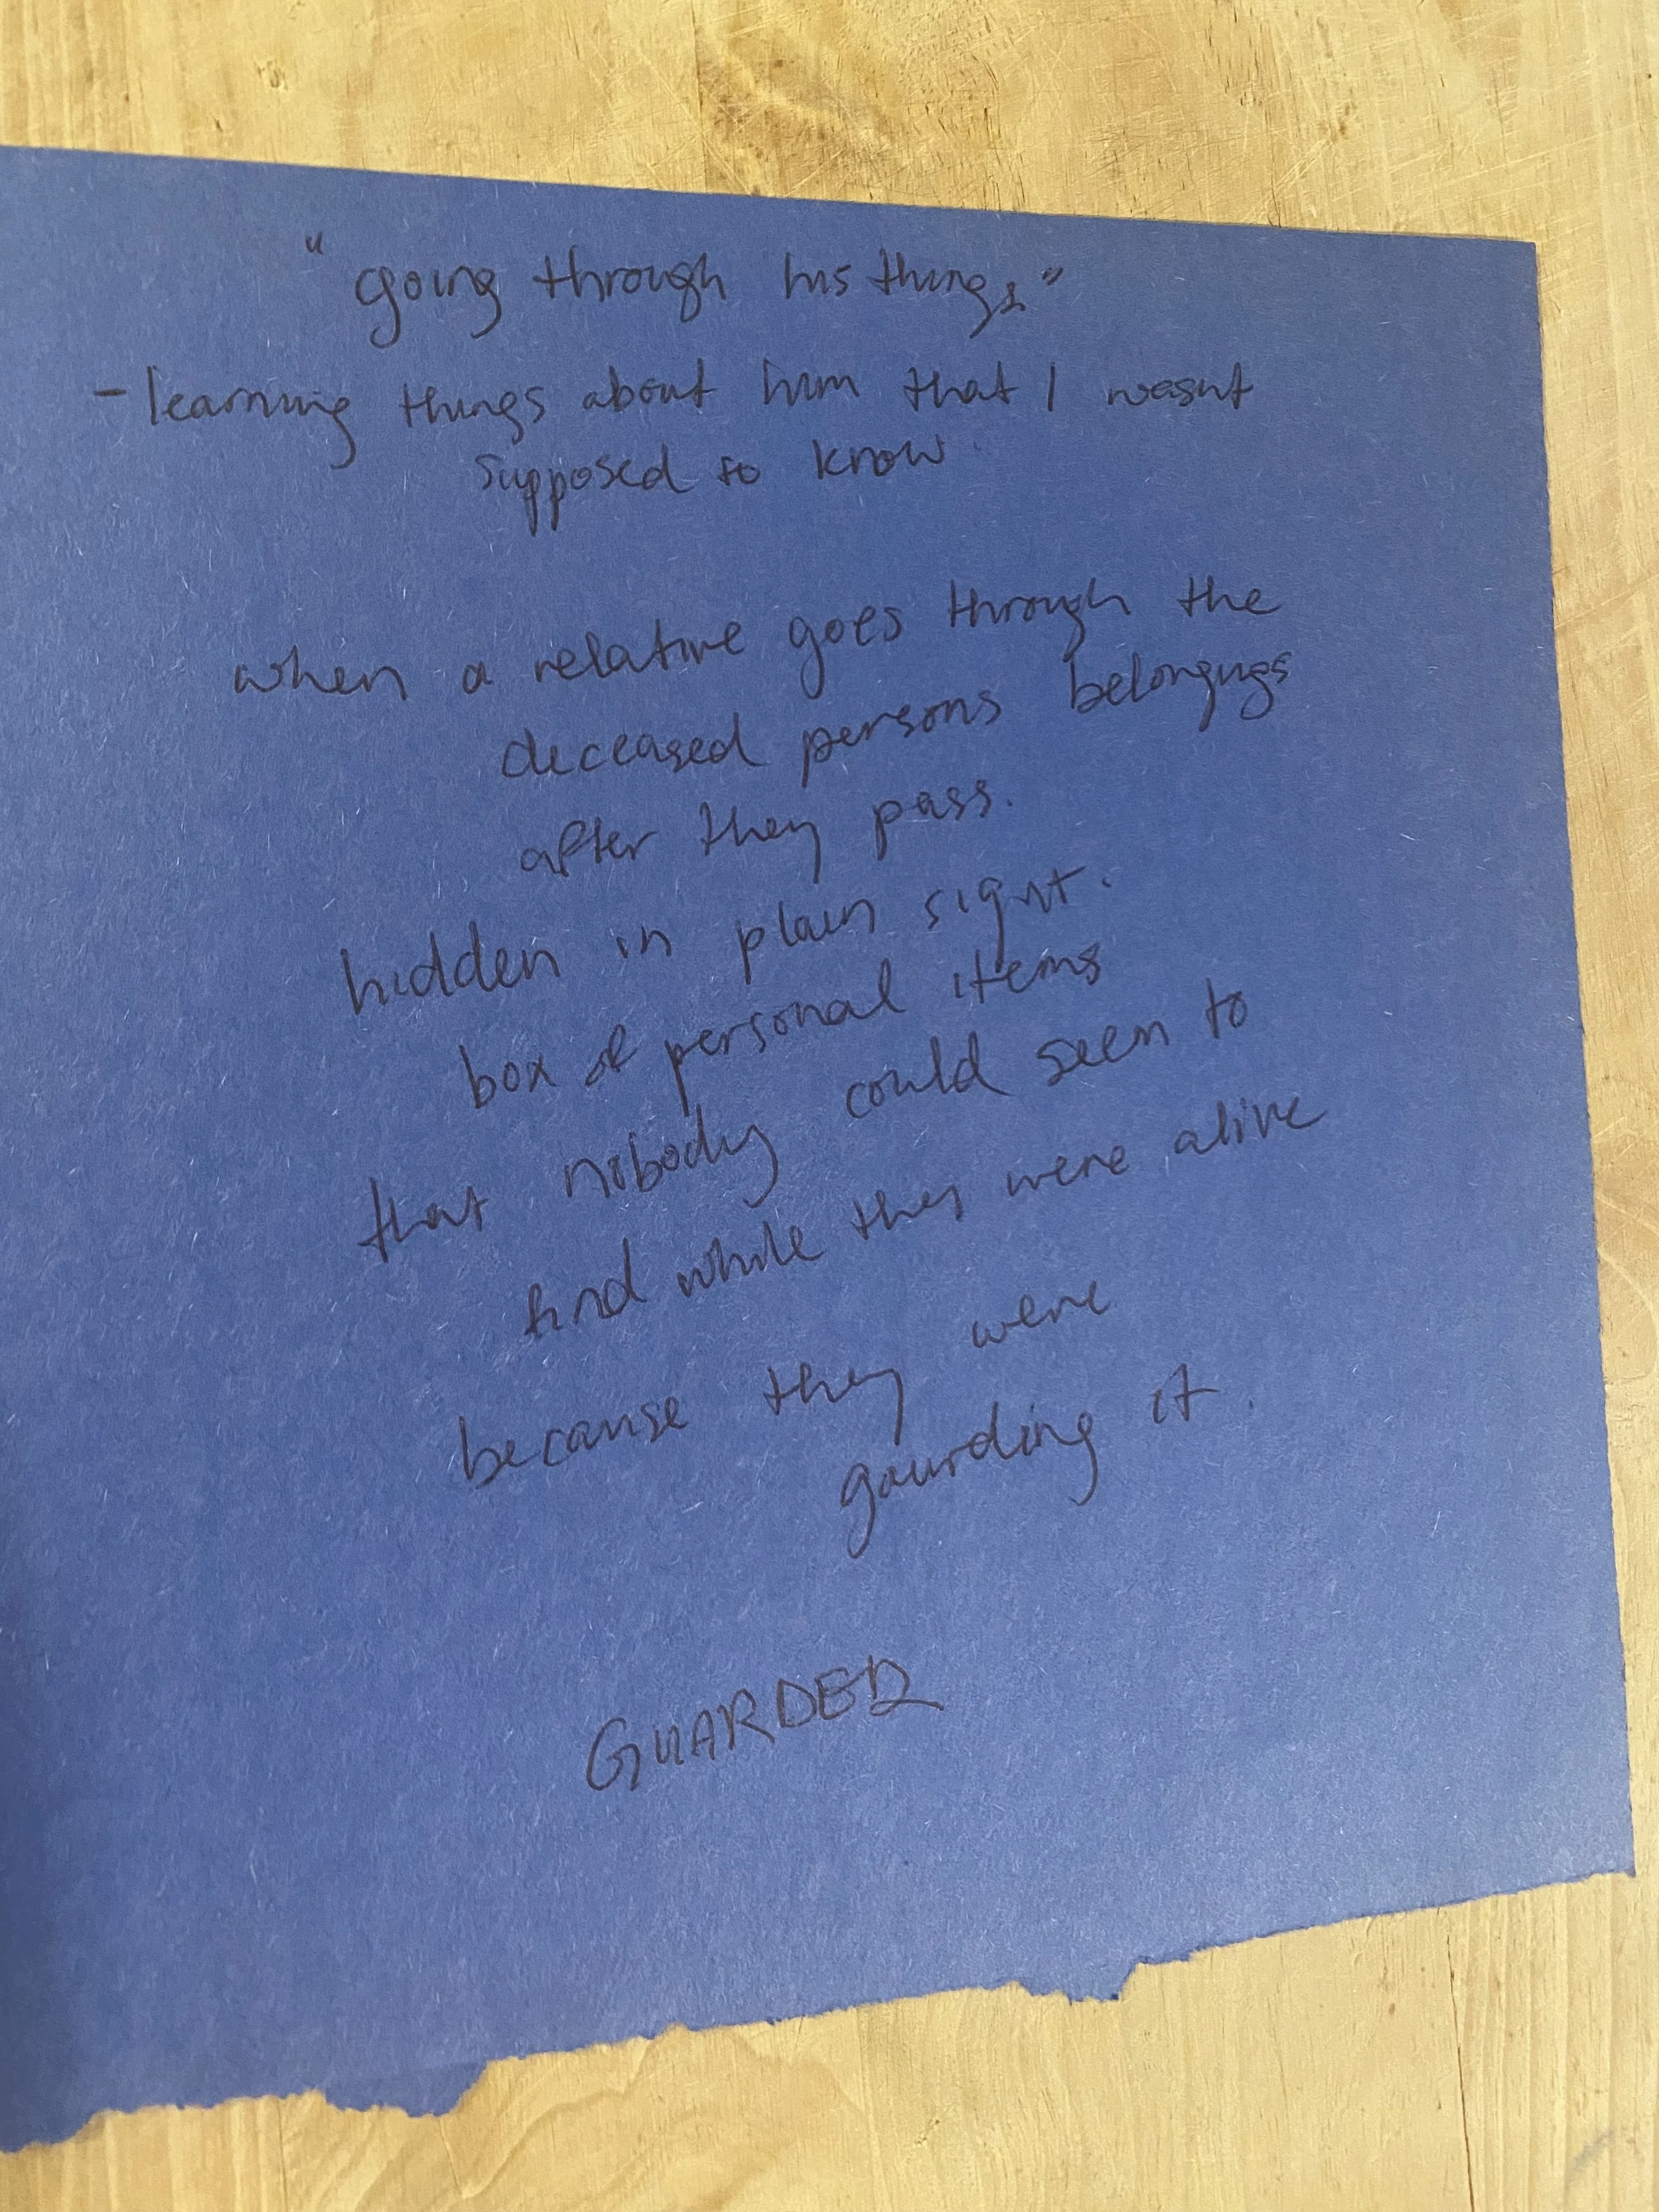 "going through his things"
- learning things about him that I wasnt
supposed to know.
when a relative goes through the
deceased persons belongings
after they pass.
hidden in plain signt.
box of personal items
that nobody could seem to
find while they were alive
because they were
gaurding it.
GUARDED